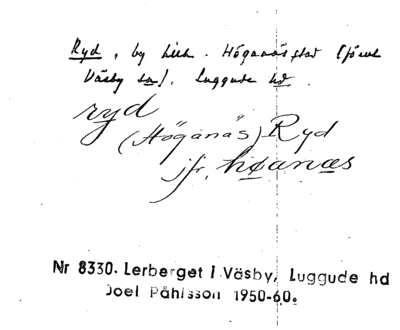 Ryd, by i Lerb. Höganäs stad (förut
Väsby sn), Luggude hd.
ryd
(Höganäs) Ryd
jfr. höanæs
Nr 8330. Lerberget i Väsby, Luggude hd
Joel Påhlsson 1950-60.